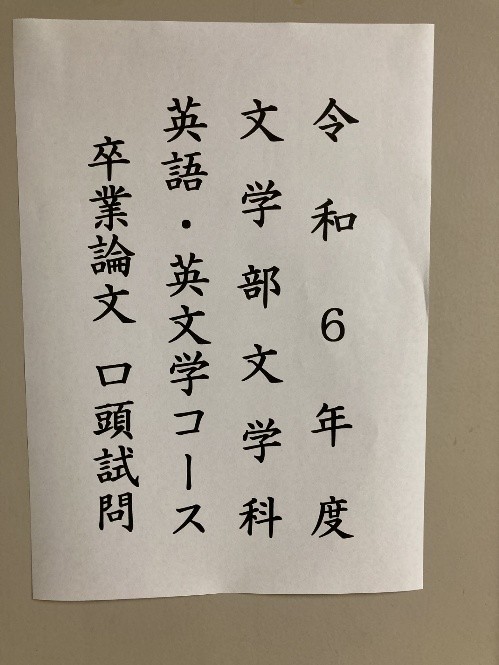 令和6年度
文学部文学科
英語・英文学コース
卒業論文 口頭試問